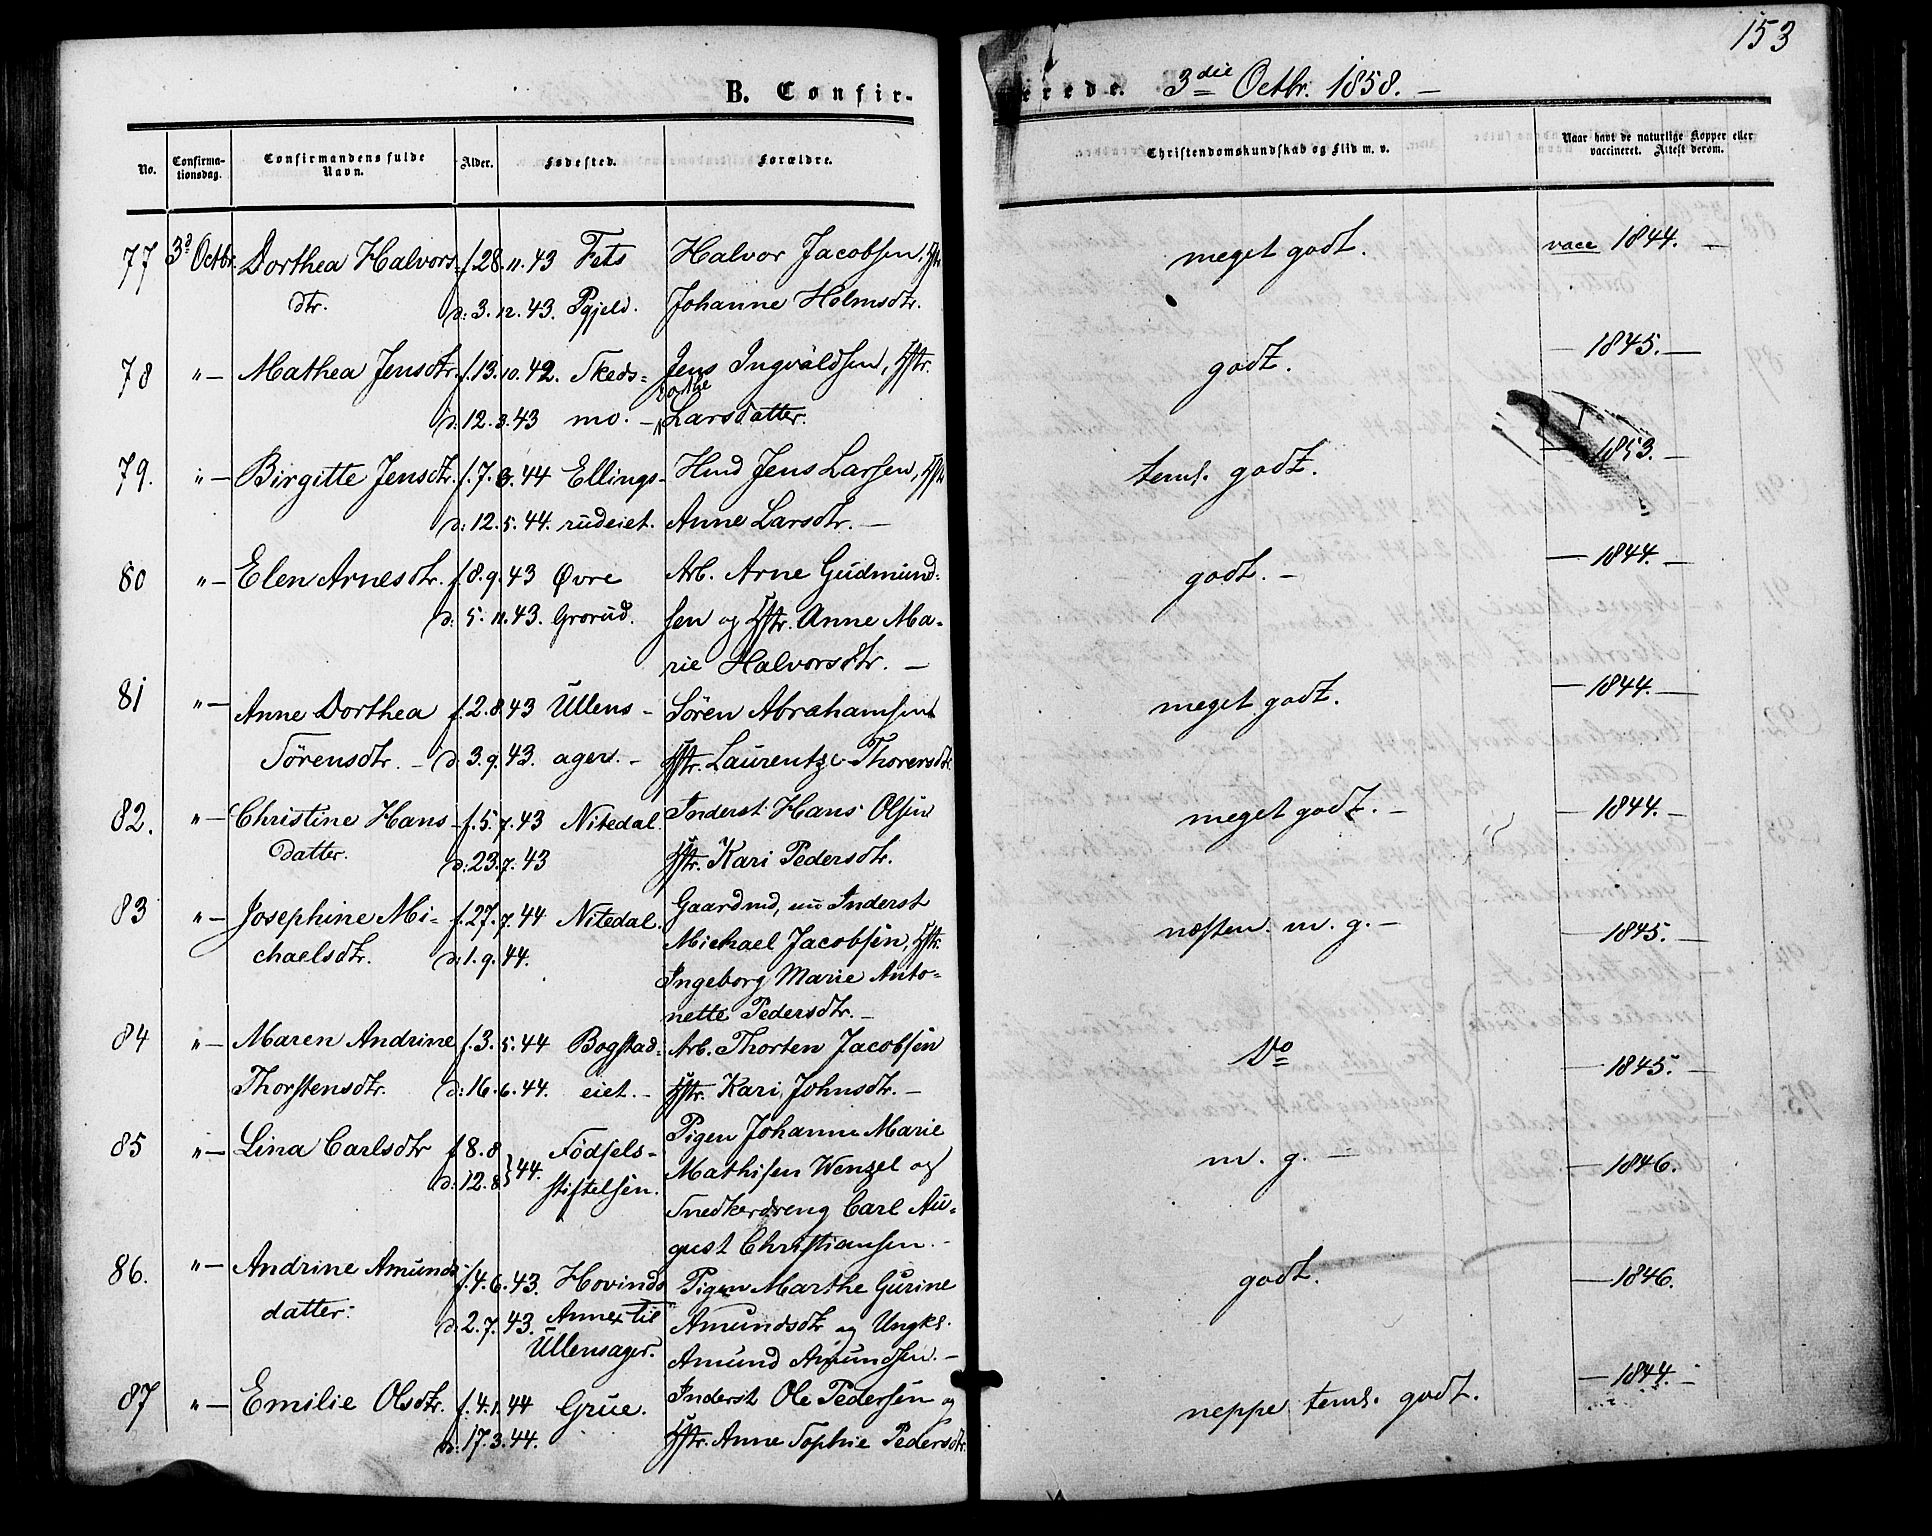 153
B. Confir-
erede. 3die Octbr. 1858. —
No. Confirma-tionsdag. Confirmandens fulde Navn. Alder. Fødested. Forældre. Christendomskundskab og Flid m. v. Naar havt de naturlige Kopper eller vaccineret. Attest derom.
77 3d Octbr. Dorthea Halvors- f. 28. 11. 43 Fets Halvor Jacobsen, Hstr. meget godt. vacc 1844. —
dtr. d: 3. 12. 43. Pgjeld. Johanne Holmsdtr.
78 "— Mathea Jensdtr. f. 13. 10. 42. Skeds- Jens Ingvaldsen, Hstr. godt. — 1845. —
d: 12. 3. 43 mo. — Larsdatter.
79. "— Birgitte Jensdtr. f. 7. 3. 44 Ellings- Hmd Jens Larsen, Hstr. teml. godt. — 1853. —
d: 12. 5. 44. rudeiet. Anne Larsdtr. —
80 "— Elen Arnesdtr. f. 8. 9. 43 Øvre Arb. Arne Gudmund- godt. — — 1844. —
d: 5. 11. 43. Grorud. sen og Hstr. Anne Ma-
rie Halvorsdtr. —
81 "— Anne Dorthea f. 2. 8. 43 Ullens- Sören Abrahamsen meget godt. — 1844. —
Sörensdtr. — d. 3. 9. 43. ager. — Hstr. Laurentze Thorersdtr.
82. "— Christine Hans- f. 5. 7. 43 Nitedal. Inderst Hans Olsen meget godt. — — 1844. —
datter. d: 23. 7. 43 Hstr. Kari Pedersdtr.
83 "— Josephine Mi- f. 27. 7. 44 Nitedal. Gaardmd, nu Inderst næsten m. g. — — 1845. —
chaelsdtr. d: 1. 9. 44. Michael Jacobsen, Hstr.
Ingeborg Marie Anto-
nette Pedersdtr. —
84 "— Maren Andrine f. 3. 5. 44 Bogstad- Arb. Thorsten Jacobsen Do — 1845. —
Thorstensdtr. d: 16. 6. 44. eiet. — Hstr. Kari Johnsdtr. —
85 "— Lina Carlsdtr f. 8. 8 } 44. Födsels- Pigen Johanne Marie m. g. — — 1846.
d: 12. 8 stiftelsen. Mathisen Wenzel og
Snedkerdreng Carl Au-
gust Christiansen. —
86. "— Andrine Amunds- f. 4. 6. 43. Hovinds Pigen Marthe Gurine godt. — 1846.
datter. d: 2. 7. 43. Annex til Amundsdtr og Ungkl.
Ullensager. Amund Amundsen. —
87 "— Emilie Olsdtr. f. 4. 1. 44 Grue. Inderst Ole Pedersen og neppe teml. godt. — 1844. —
d: 17. 3. 44. Hstr. Anne Sophie Pedersdtr.